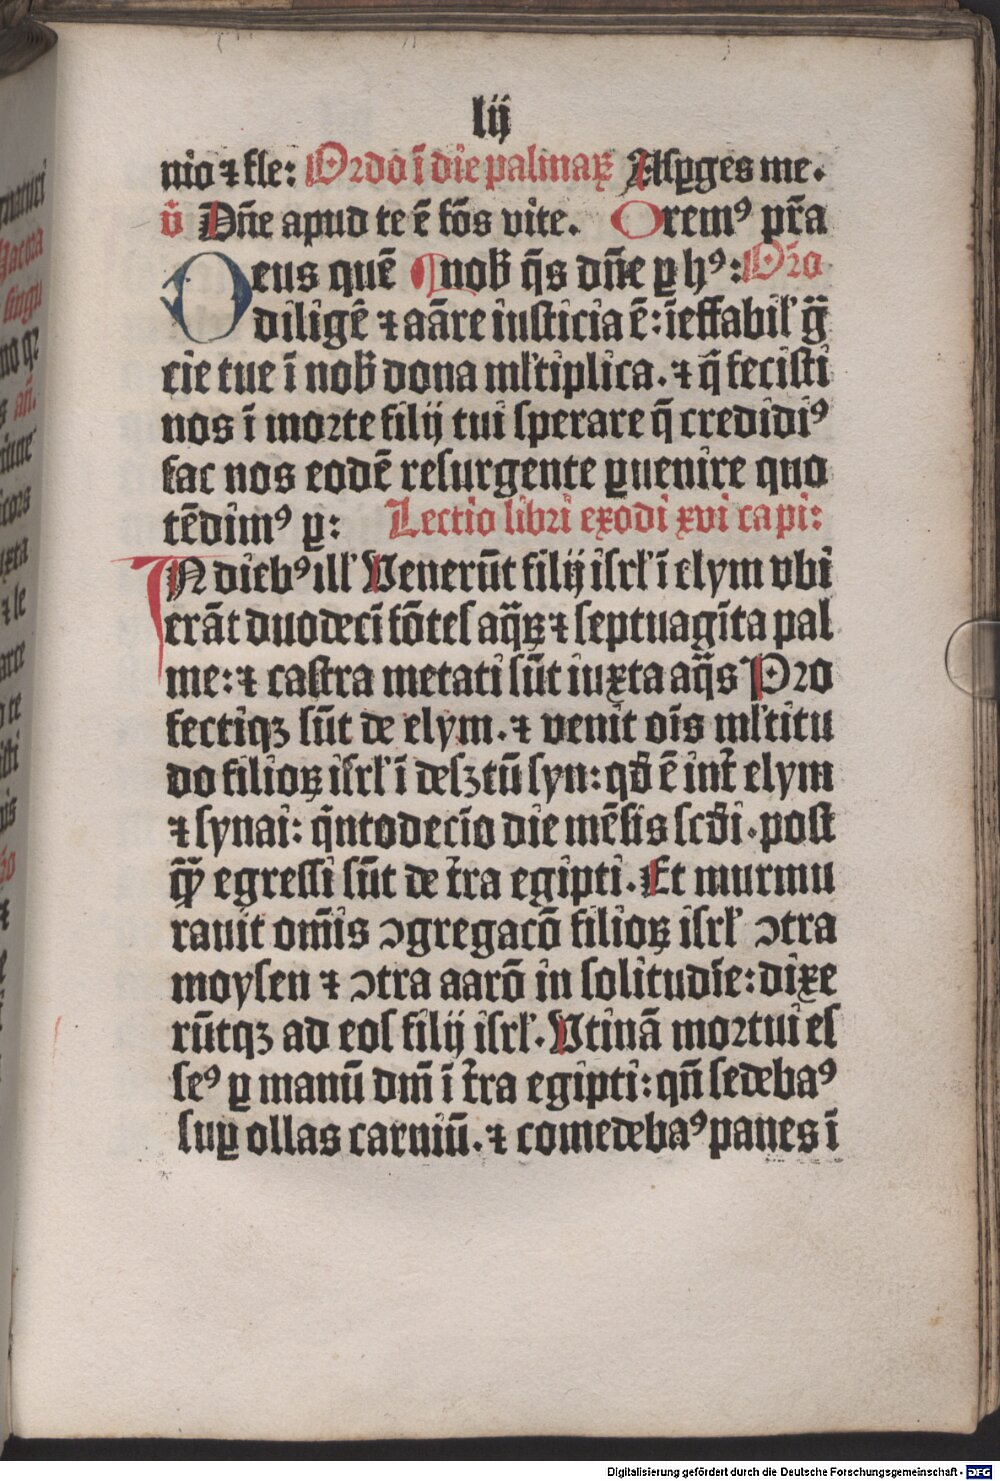 lij
nio ⁊ fle: Ordo ī die palmaꝝ Aſꝑges me.
v̄ Dn̄e apud te ē fōs vite. Oremꝰ pr̄a
Deus quē nob̄ q̄s dn̄e ꝑ hꝰ: Or̄o
diligē ⁊ aāre iuſticia ē: īeffabil̛ g̈
cie tue ī nob̄ dona ml̛tiplica. ⁊ q̄ feciſti
nos ī morte filij tui ſperare q̄ credidiꝰ
fac nos eodē reſurgente ꝑuenire quo
tēdimꝰ ꝑ: Lectio libri exodi xvi capi:
IN diebꝰ ill̛ Venerūt filij iſrl̛ ī elym vbi
erāt duodecī fōteſ aq̈ꝝ ⁊ ſeptuagīta pal
me: ⁊ caſtra metati ſūt iuxta aq̈s Pro
fectiqꝫ ſūt de elym. ⁊ venit oīs ml̛titu
do filioꝝ iſrl̛ ī deſꝫtū ſyn: qd̄ ē int̄ elym
⁊ ſynai: q̄ntodecīo die mēſis ſcd̄i. poſt
q̈ꝙ egreſſi ſūt de t̄ra egipti. Et murmu
rauit om̄is ꝯgregacō filioꝝ iſrl̛ ꝯtra
moyſen ⁊ ꝯtra aarō in ſolitudīe: dixe
rūtqꝫ ad eoſ filij iſrl̛. Vtinā mortui eſ
ſeꝰ ꝑ manū dm̄ ī t̄ra egipti: qn̄ ſedebaꝰ
ſuꝑ ollas carniū. ⁊ comedebaꝰ panes ī
Digitalisierung gefördert durch die Deutsche Forschungsgemeinschaft - DFG